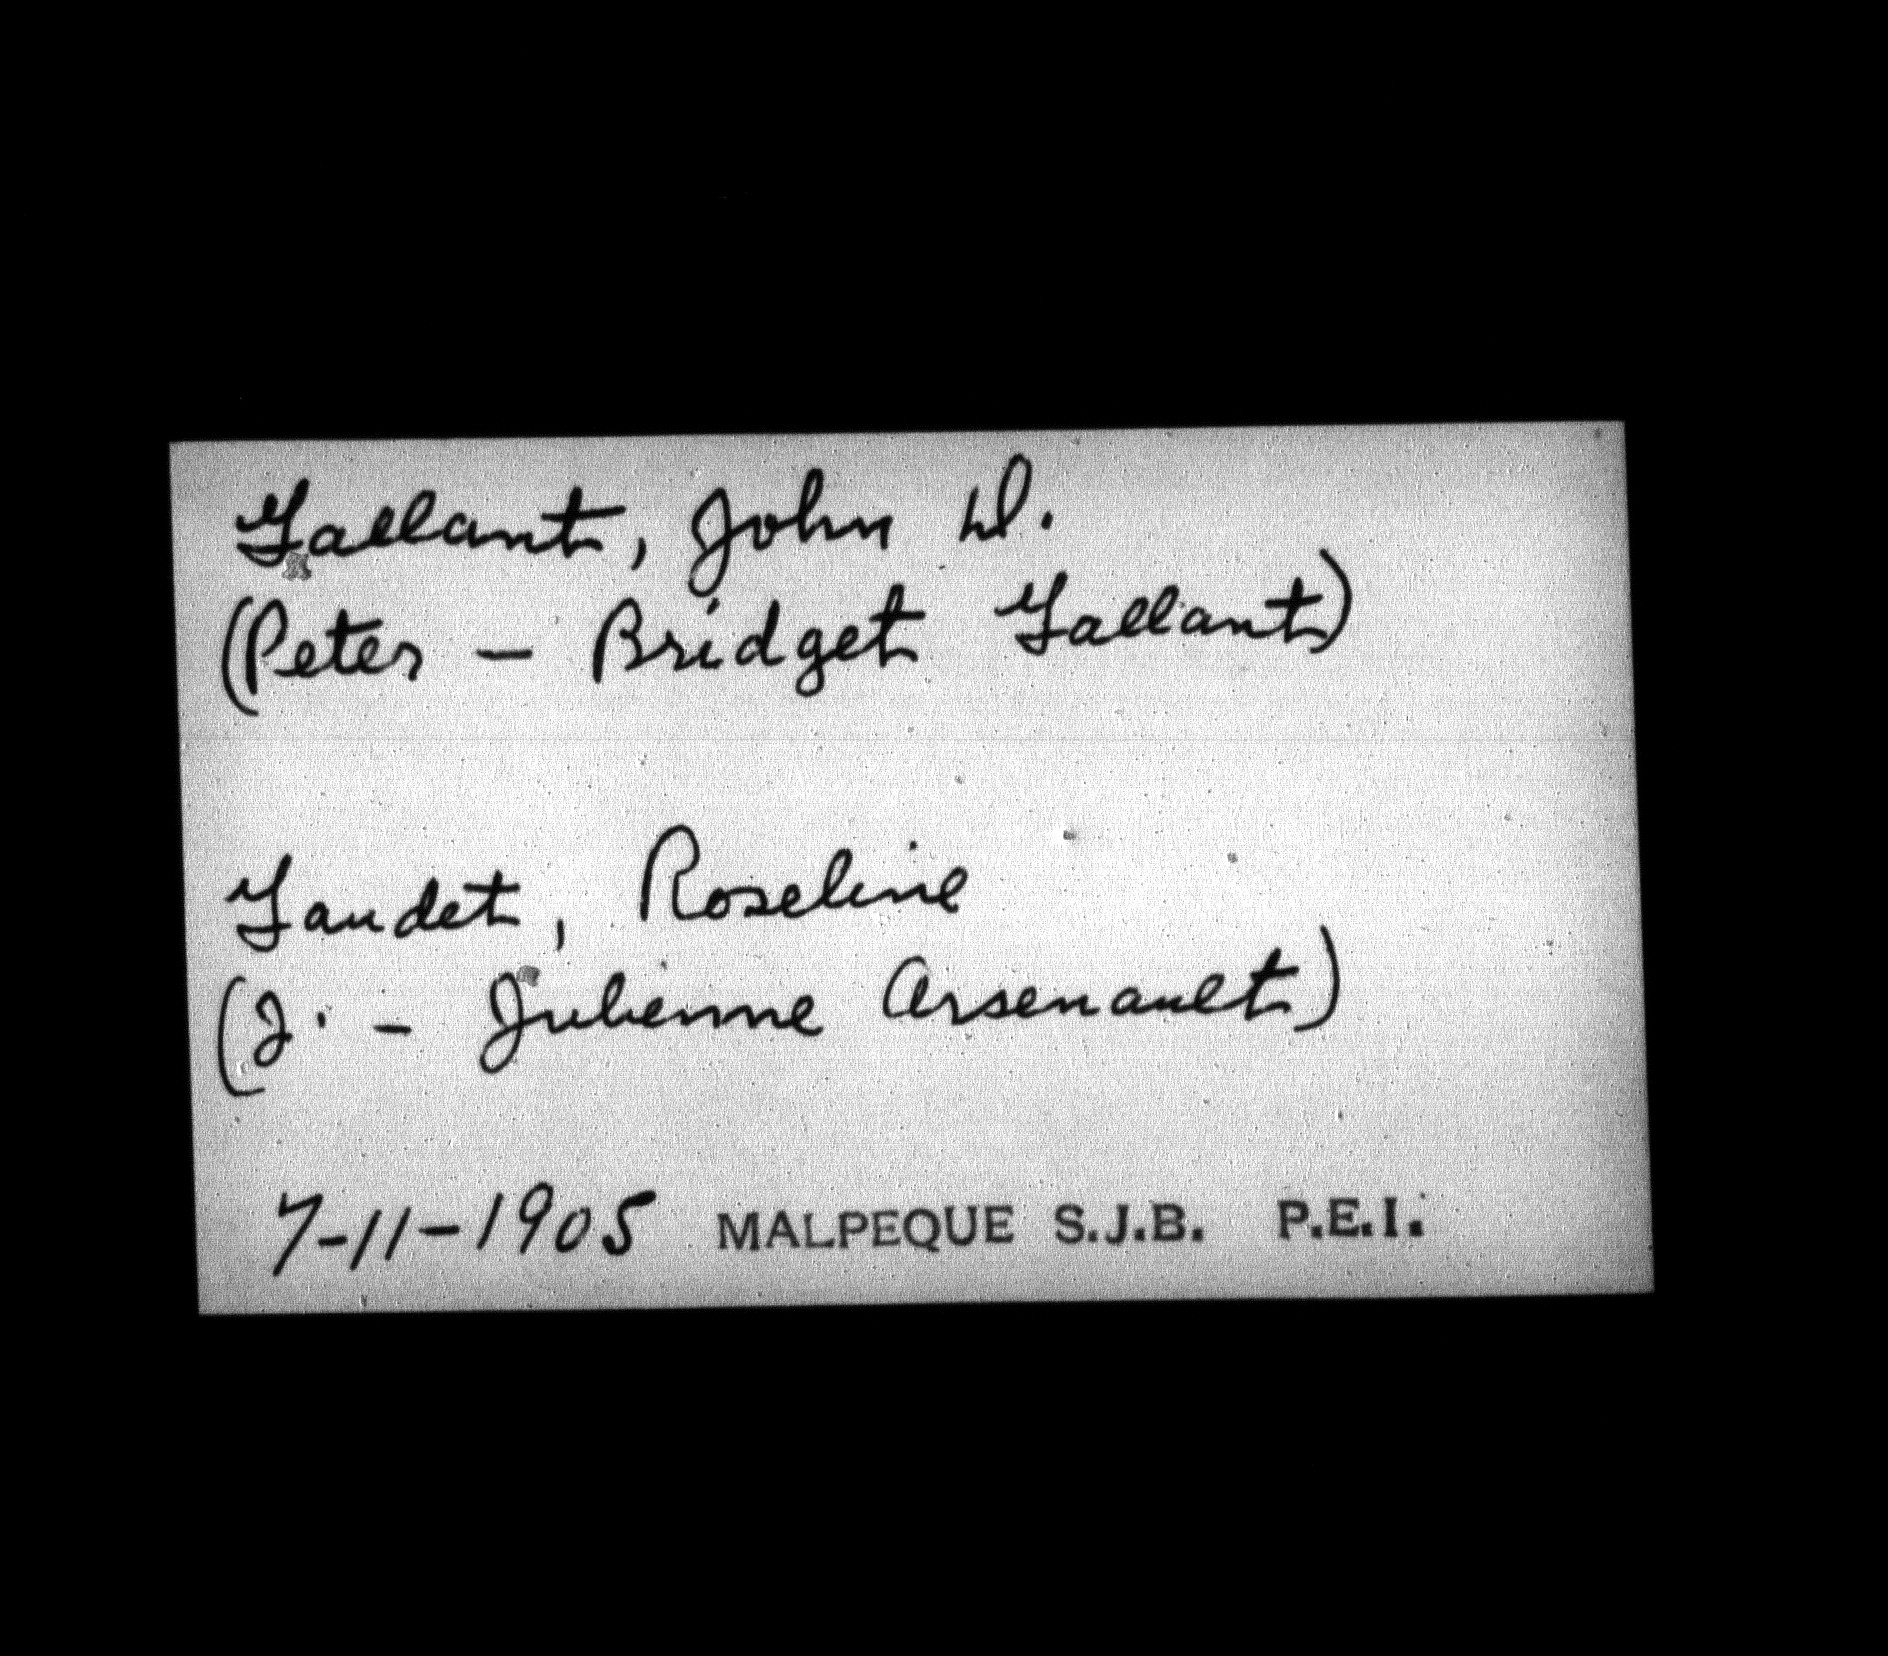 Gallant, John D.
(Peter - Bridget Gallant)
Gaudet, Roseline
(J. - Julienne Arsenault)
7-11-1905 MALPEQUE S.J.B. P.E.I.